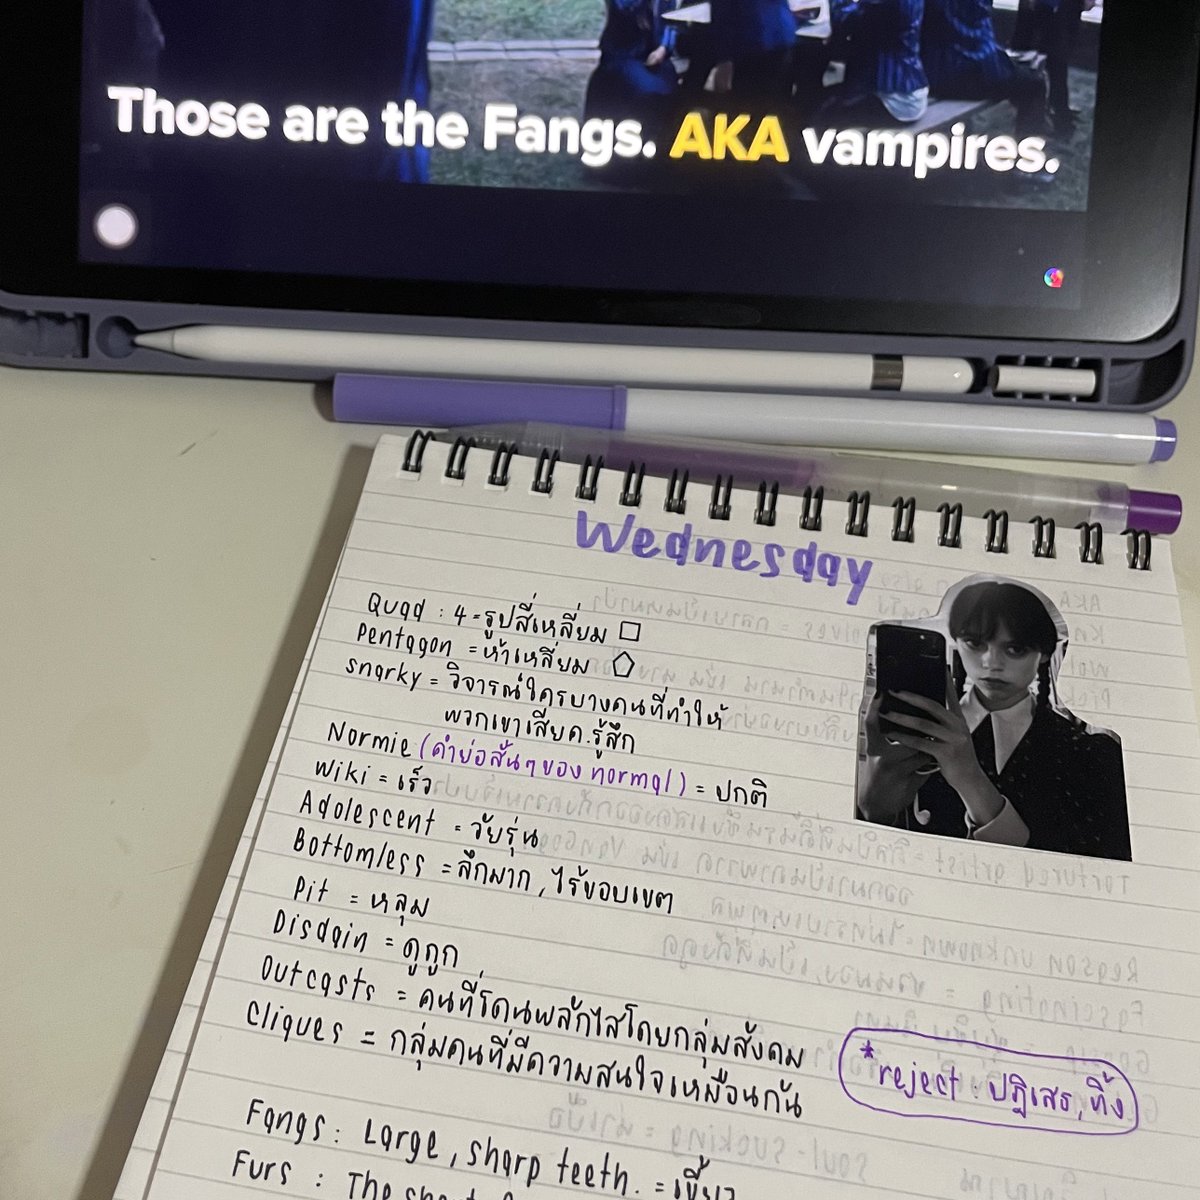 Those are the Fangs. AKA vampires.
Wednesday
Quad : 4 = รูปสี่เหลี่ยม
Pentagon = ห้าเหลี่ยม
snarky = วิจารณ์ใครบางคนที่ทำให้
พวกเขาเสียค.รู้สึก
Normie (คำย่อสั้นๆของ normal) = ปกติ
Wiki = เร็ว
Adolescent = วัยรุ่น
Bottomless = ลึกมาก, ไร้ขอบเขต
Pit = หลุม
Disdain = ดูถูก
Outcasts = คนที่โดนผลักไสโดยกลุ่มสังคม
Cliques = กลุ่มคนที่มีความสนใจเหมือนกัน
*reject : ปฏิเสธ, ทิ้ง
Fangs : Large, sharp teeth. = เขี้ยว
Furs : The short